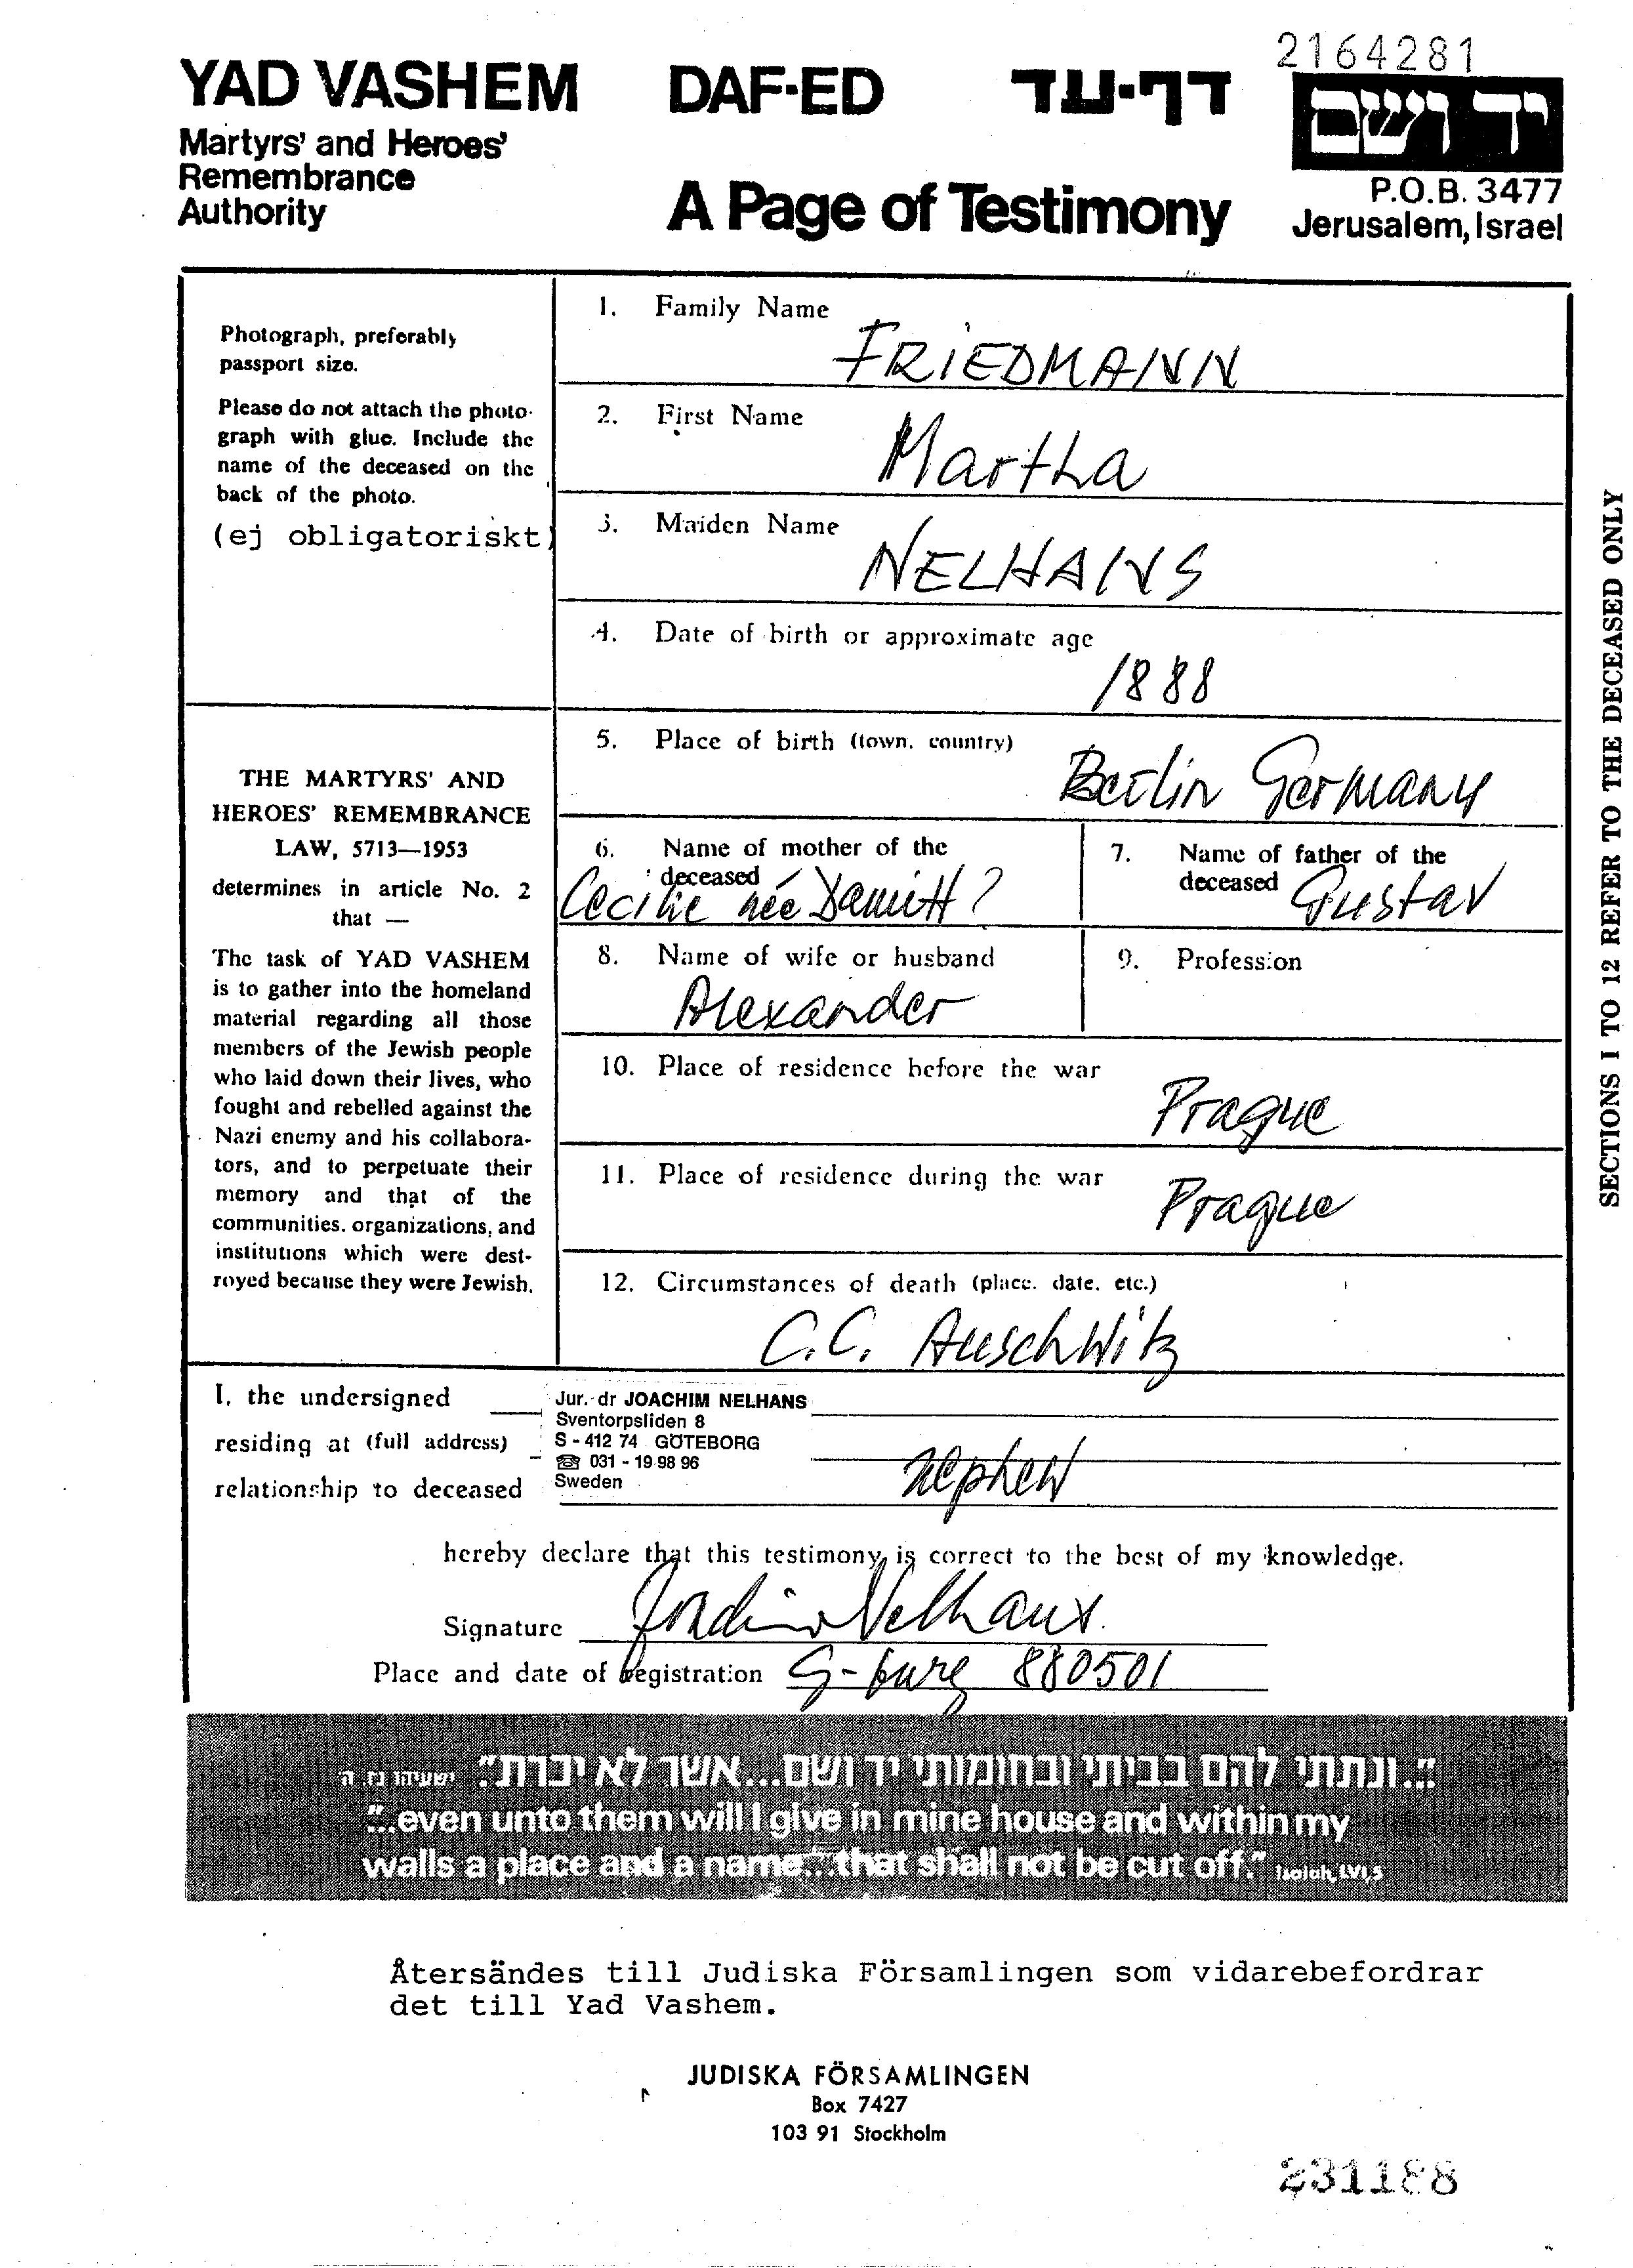 2164281
YAD VASHEM DAF-ED דף-עד יד ושם
Martyrs' and Heroes'
Remembrance
Authority
A Page of Testimony
P.O.B. 3477
Jerusalem, Israel
Photograph, preferably
passport size.
Please do not attach the photo-
graph with glue. Include the
name of the deceased on the
back of the photo.
(ej obligatoriskt)
THE MARTYRS' AND
HEROES' REMEMBRANCE
LAW, 5713—1953
determines in article No. 2
that —
The task of YAD VASHEM
is to gather into the homeland
material regarding all those
members of the Jewish people
who laid down their lives, who
fought and rebelled against the
Nazi enemy and his collabora-
tors, and to perpetuate their
memory and that of the
communities, organizations, and
institutions which were dest-
royed because they were Jewish.
1. Family Name
FRIEDMANN
2. First Name
Martha
3. Maiden Name
NELHANS
4. Date of birth or approximate age
1888
5. Place of birth (town, country)
Berlin Germany
6. Name of mother of the
deceased
Cecilie née ?
7. Name of father of the
deceased Gustav
8. Name of wife or husband
Alexander
9. Profession
10. Place of residence before the war
Prague
11. Place of residence during the war
Prague
12. Circumstances of death (place, date, etc.)
C.C. Auschwitz
SECTIONS 1 TO 12 REFER TO THE DECEASED ONLY
I, the undersigned
residing at (full address)
relationship to deceased
Jur. dr JOACHIM NELHANS
Sventorpsliden 8
S - 412 74 GÖTEBORG
☎ 031 - 19 98 96
Sweden
nephew
hereby declare that this testimony is correct to the best of my knowledge.
Signature Joachim Nelhans
Place and date of registration G-burg 880501
"...ונתתי להם בביתי ובחומותי יד ושם...אשר לא יכרת". ישעיהו נו, ה
"...even unto them will I give in mine house and within my
walls a place and a name...that shall not be cut off." Isaiah, LVI,5
Återsändes till Judiska Församlingen som vidarebefordrar
det till Yad Vashem.
JUDISKA FÖRSAMLINGEN
Box 7427
103 91 Stockholm
231188